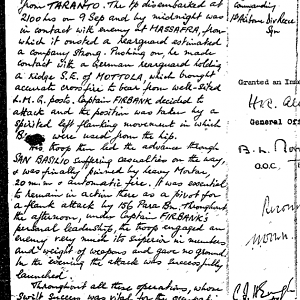 from TARANTO. The tp disembarked at
2100 hrs on 9 Sep and by midnight was
in contact with enemy at MASSAFRA, from
which it ousted a rearguard estimated
a company strong. Pushing on, he made
contact with a German rearguard holding
a ridge S.E. of MOTTOLA, which brought
accurate crossfire to bear from well-sited
L.M.G. posts. Captain FIRBANK decided to
attack and the position was taken by a
spirited left flanking movement in which
were used from the hip.
His troop then led the advance through
SAN BASILIO suffering casualties on the way,
& was finally pinned by heavy Mortar,
20 m.m & automatic fire. It was essential
to remain in action there as a pivot for
a flank attack by 156 Para Bn. Throughout
the afternoon, under Captain FIRBANK's
personal leadership, the troop engaged an
enemy very much its superior in numbers
and weight of weapons and gave no ground.
In the evening the attack was successfully
launched.
Throughout all these operations, whose
swift success was vital for the
Commanding
1 Airborne Div Recce
Sqn
Granted an Imm
General Offi
O.O.C.